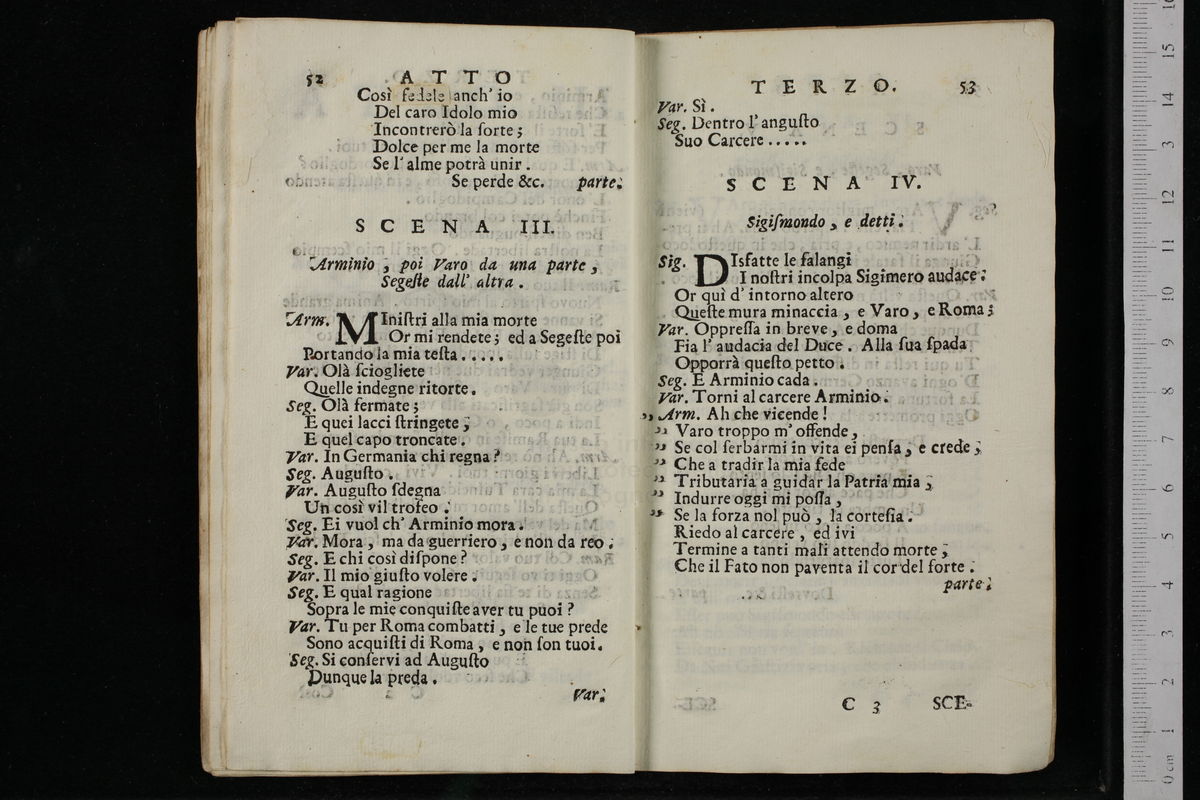 52 ATTO
Così fedele anch' io
Del caro Idolo mio
Incontrerò la ſorte;
Dolce per me la morte
Se l' alme potrà unir.
Se perde &c. parte.
SCENA III.
Arminio, poi Varo da una parte,
Segeſte dall' altra.
Arm. MIniſtri alla mia morte
Or mi rendete; ed a Segeſte poi
Portando la mia teſta.....
Var. Olà ſciogliete
Quelle indegne ritorte.
Seg. Olà fermate;
E quei lacci ſtringete,
E quel capo troncate.
Var. In Germania chi regna?
Seg. Auguſto.
Var. Auguſto ſdegna
Un così vil trofeo.
Seg. Ei vuol ch' Arminio mora.
Var. Mora, ma da guerriero, e non da reo.
Seg. E chi così diſpone?
Var. Il mio giuſto volere.
Seg. E qual ragione
Sopra le mie conquiſte aver tu puoi?
Var. Tu per Roma combatti, e le tue prede
Sono acquiſti di Roma, e non ſon tuoi.
Seg. Si conſervi ad Auguſto
Dunque la preda.
Var.
TERZO. 53
Var. Sì.
Seg. Dentro l' anguſto
Suo Carcere.....
SCENA IV.
Sigiſmondo, e detti.
Sig. DIsfatte le falangi
I noſtri incolpa Sigimero audace:
Or quì d' intorno altero
Queſte mura minaccia, e Varo, e Roma;
Var. Oppreſſa in breve, e doma
Fia l' audacia del Duce. Alla ſua ſpada
Opporrà queſto petto.
Seg. E Arminio cada.
Var. Torni al carcere Arminio.
,, Arm. Ah che vicende!
,, Varo troppo m' offende,
,, Se col ſerbarmi in vita ei penſa, e crede,
,, Che a tradir la mia fede
,, Tributaria a guidar la Patria mia,
,, Indurre oggi mi poſſa,
,, Se la forza nol può, la corteſia.
Riedo al carcere, ed ivi
Termine a tanti mali attendo morte,
Che il Fato non paventa il cor del forte.
parte.
C 3 SCE-
0 cm 1 2 3 4 5 6 7 8 9 10 11 12 13 14 15 16